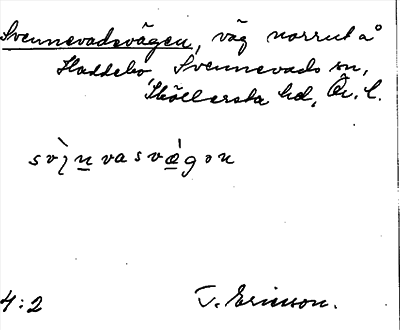 Svennevadsvägen, väg norrut å
Haddebo, Svennevads sn,
Sköllersta hd, Ör. l.
svenvasvægon
4:2
T. Ericsson.